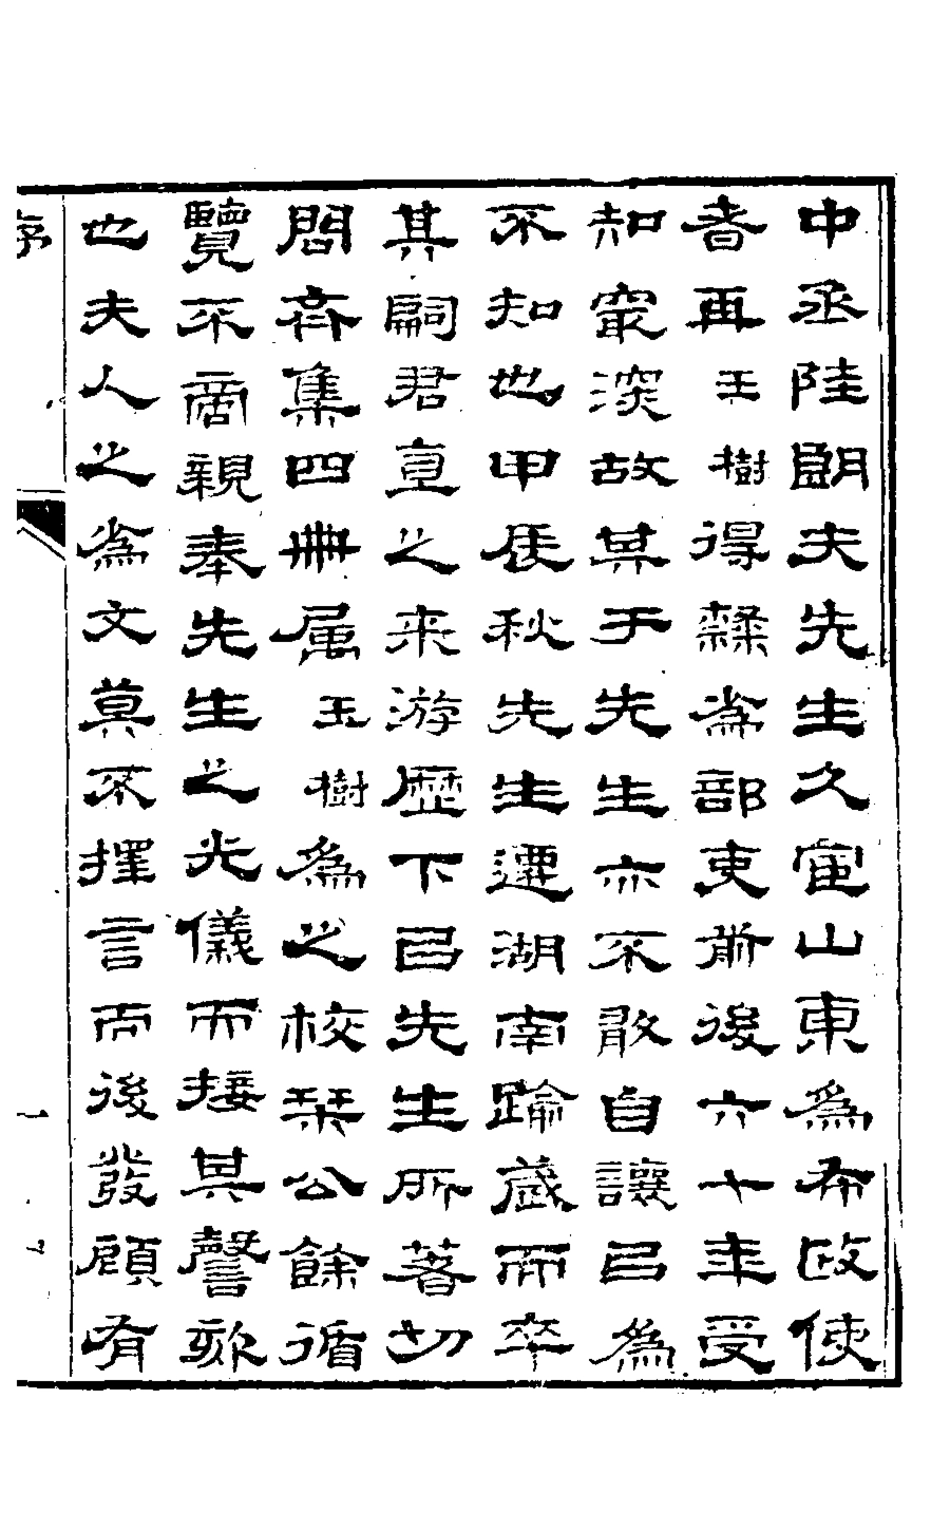 中丞陸朗夫先生久宦山東為布政使
者再玉樹得隸為部吏前後六十年受
知最深故其于先生亦不敢自讓以為
不知也甲辰秋先生遷湖南踰歲而卒
其嗣君直之来游歷下以先生所著切
問齊集四冊属玉樹為之校栞公餘循
覽不啻親奉先生之光儀而接其謦欬
也夫人之為文莫不擇言而後發顧有
序